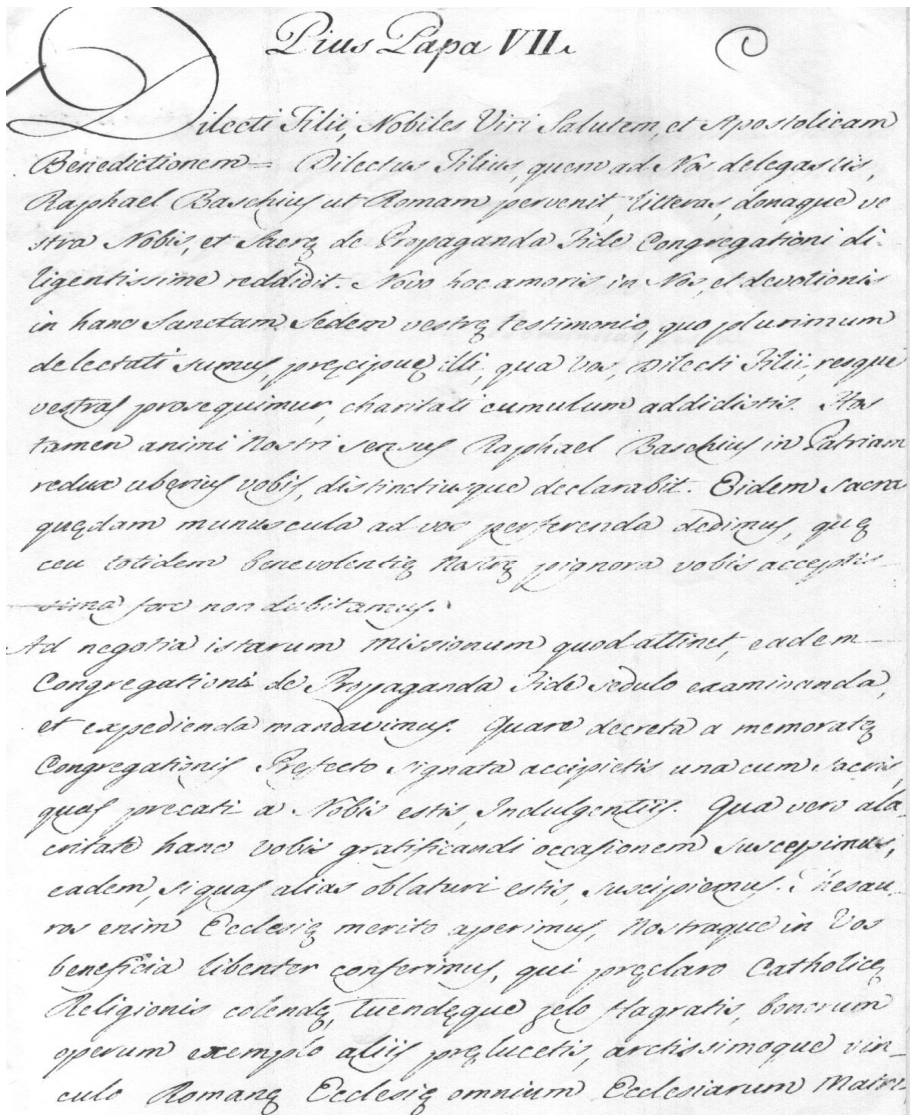 Pius Papa VII.
Dilecti Filii, Nobiles Viri Salutem, et Apostolicam
Benedictionem = Dilectus Filius, quem ad Nos delegastis,
Raphael Baschius ut Romam pervenit, litteras, donaque ve
stra Nobis, et Sacrę de Propaganda Fide Congregationi di-
ligentissime reddidit. Novo hoc amoris in Nos, et devotionis
in hanc Sanctam Sedem vestrę testimonio, quo plurimum
delectati sumus, pręcipuę illi, qua Vos, Dilecti Filii, resque
vestras prosequimur, charitati cumulum addidistis. Hos
tamen animi Nostri sensus Raphael Baschius in Patriam
redux uberius vobis, distinctiusque declarabit. Eidem sacra
quędam munuscula ad vos perferenda dedimus, quę
ceu totidem benevolentię Nostrę pignora vobis acceptis-
sima fore non dubitamus.
Ad negotia istarum Missionum quod attinet, eadem
Congregationi de Propaganda Fide sedulo examinanda,
et expedienda mandavimus. Quare decreta a memoratę
Congregationis Pręfecto signata accipietis una cum sacris,
quas precati a Nobis estis, Indulgentiis. Qua vero ala-
critate hanc vobis gratificandi occasionem suscepimus,
eadem, si quas alias oblaturi estis, suscipiemus. Thesau-
ros enim Ecclesię merito aperimus, Nostraque in Vos
beneficia libenter conferimus, qui pręclaro Catholicę
Religionis colendę, tuendęque zelo flagratis, bonorum
operum exemplo aliis pręlucetis, arctissimoque vin-
culo Romanę Ecclesię omnium Ecclesiarum Matri,